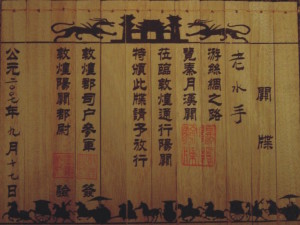 關牒
老水手
游絲綢之路
覽秦月漢關
莅臨敦煌通行陽關
特頒此牒請予放行
敦煌郡司户參軍 簽
敦煌陽關都尉 驗
公元二〇〇七年九月十七日